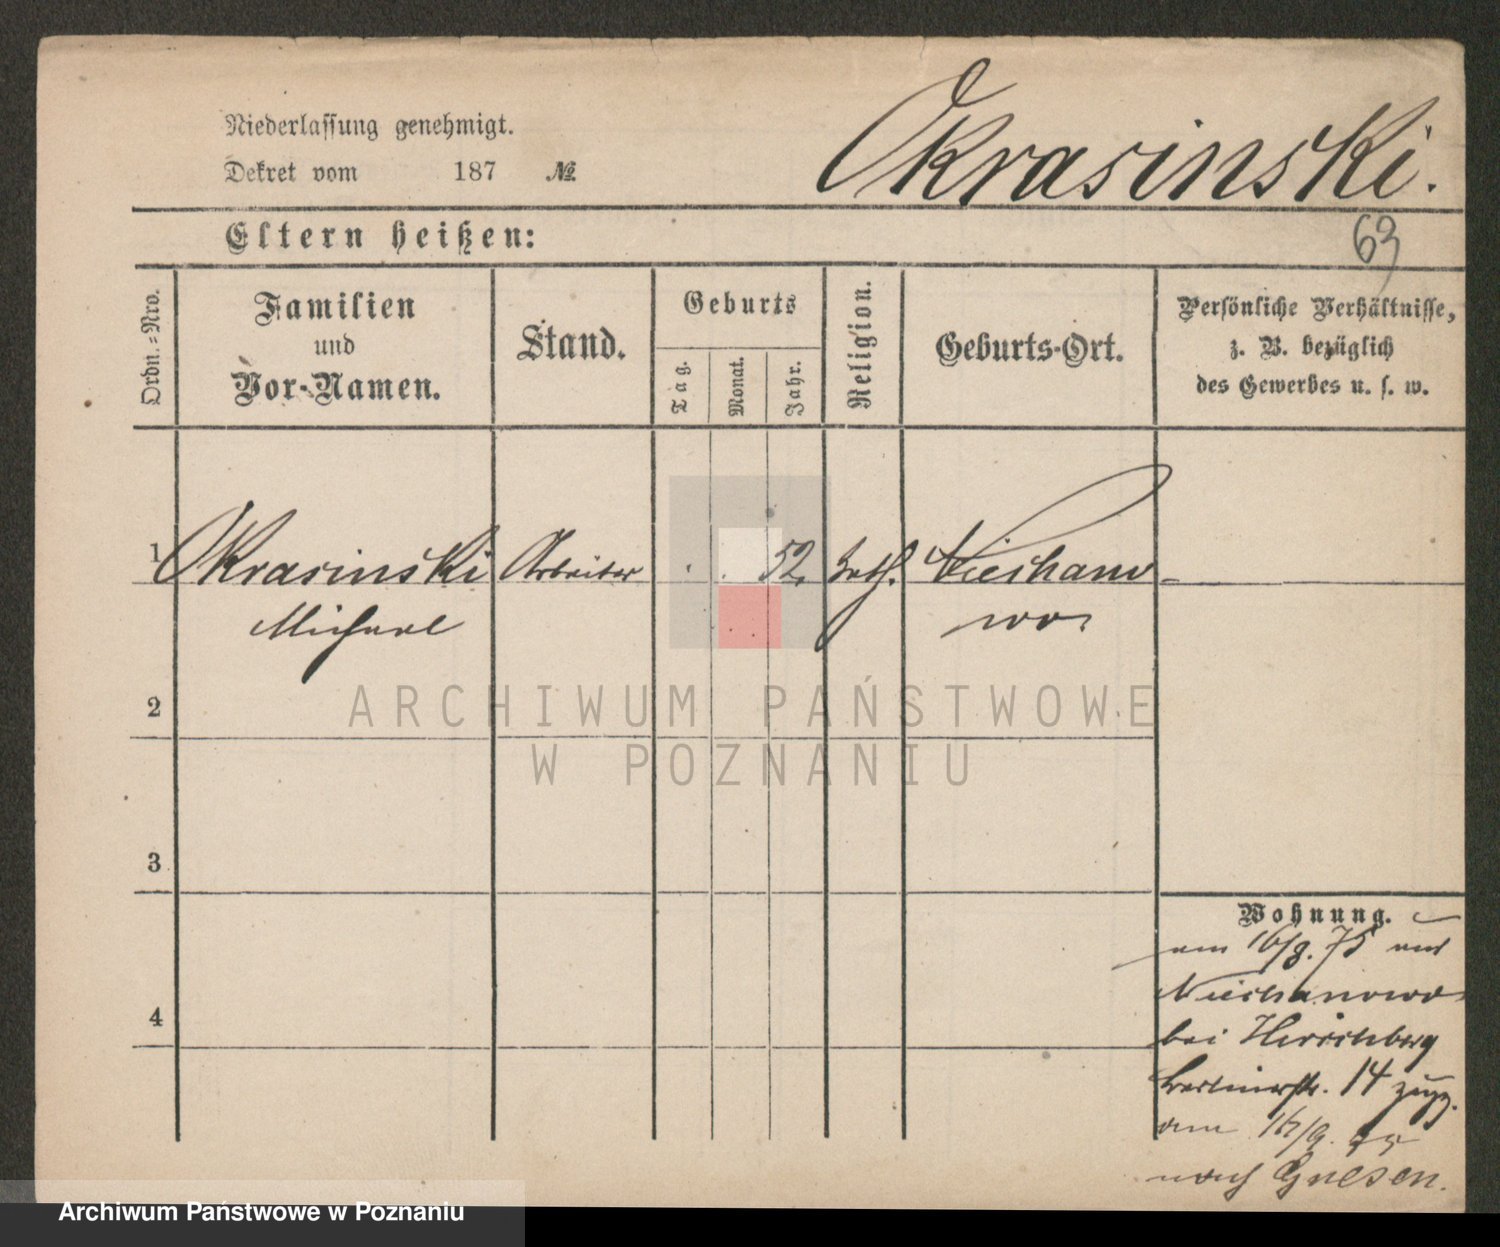 Niederlassung genehmigt.
Dekret vom 187 №
Okrasinski.
Eltern heißen:
63
Ordn.-Nro.
Familien
und
Vor-Namen.
Stand.
Geburts
Tag.
Monat.
Jahr.
Religion.
Geburts-Ort.
Persönliche Verhältnisse,
z. B. bezüglich
des Gewerbes u. s. w.
1 Okrasinski Arbeiter . . 52. kath.
Michael wo.
2
ARCHIWUM PAŃSTWOWE
W POZNANIU
3
4
Wohnung.
am 16/8. 75 aus
Niechanowo
bei Hirschberg
14 zugz.
am 75
nach Gnesen.
Archiwum Państwowe w Poznaniu